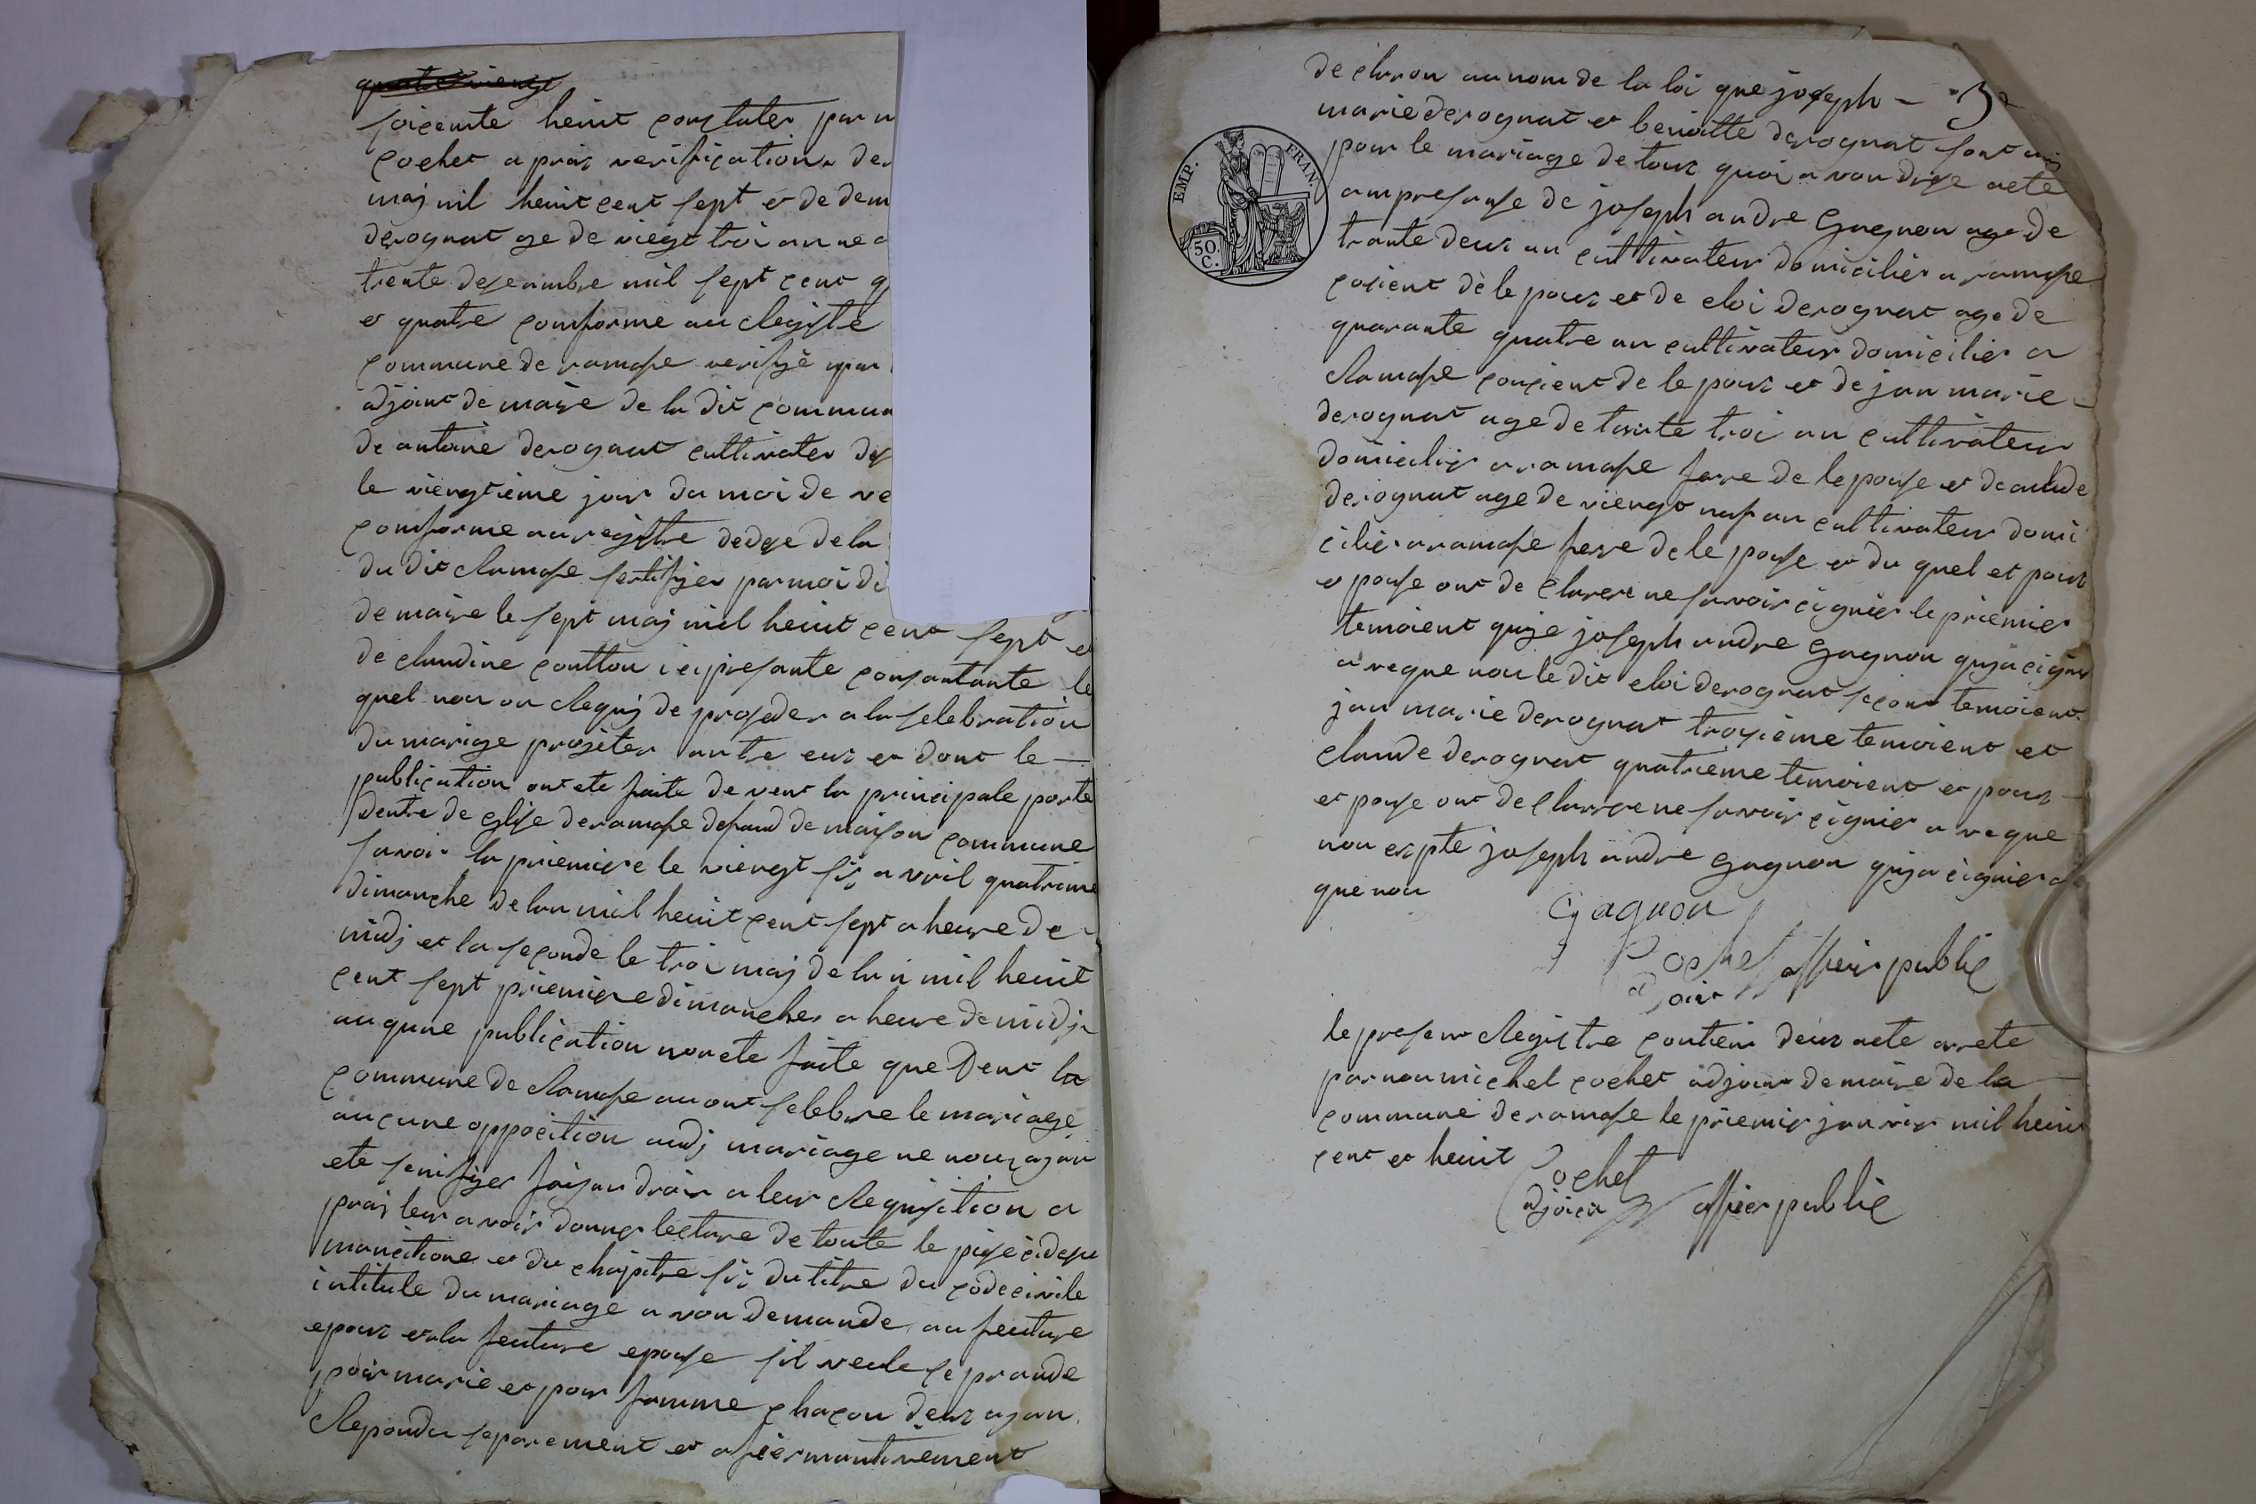 soicente heuit constater par m
cochet a prais verification de
maj mil heuit cent sept et de dem
derognat age de viegt troi an ne a
trente desenmbre mil sept cent q
et quatre comforme au Registe
commune de ramase verifye par
adjoint de maire de la dit commun
de antoine derognat cultivater de
le viengtieme jour du moi de ve
comforme au registre de dese de la
du dit Ramase sertifyer par moi di
de maire le sept maj mil heuit cent sept et
de claudine coutton ici presante consantante le
quel nou on Requj de proseder a la selebration
du mariage projeter antre eux et dont le
publication ont ete faite de vent la principale porte
dentre de eglise de ramase defaud de maison commune
savoir la priemiere le viengt sis avril quatrieme
dimanche de lan mil heuit cent sept a heure de
midj et la seconde le troi maj de lan mil heuit
cent sept priemiere dimanche a heure de midj
auqune publication nonete faite que dent la
commune de Ramase au ont selebre le mariage
aucune oppocition audj mariage ne nous ajan
ete senifyer faisan droir a leur Requisition a
prais leur avoir donner lecture de toute le piese cidesu
mancitione et du chapitre sis du titre du code civile
intitule du mariage avon demande au feuture
epoux et la feuture epouse sil veule ce prande
pour marie et pour famme chacon deux ajan
Repondu separement et afiermantivement
de claron au nom de la loi que joseph - 3
marie derognat et benoitte derognat sont uni
pour le mariage de tous quoi avon drese acte
EMP. FRAN.
50 C.
anpresanse de joseph andre Gagnon age de
trante deux an cultivateur domicilier a ramase
cosient de le poux et de eloi derognat age de
quarante quatre an cultivateur domicilier a
Ramase cousient de le poux et de jan marie
derognat age de trante troi an cultivateur
domicilier a ramase frere de le pouse et de claude
derognat age de viengt naf an cultivateur domi
cilier a ramase frere de le pouse et du quel et poux
et pouse ont de clarere ne savoir cignier le priemier
temoient quje joseph andre gagnon quja cigner
aveque nou le dit eloi derognat second temoient
jan marie derognat troisieme temoient et
claude derognat quatrieme temoient et poux
et pouse ont de clarere ne savoir cignier aveque
nou expte joseph andre gagnon quja cignier a
que nou
Gagnon
Cochet
adjoin officier public
le presen Registre contien deux acte arrete
par nou michel cochet adjoint de maire de la
commune de ramase le priemier janvier mil heuit
cent et heuit
Cochet
adjoien officier public